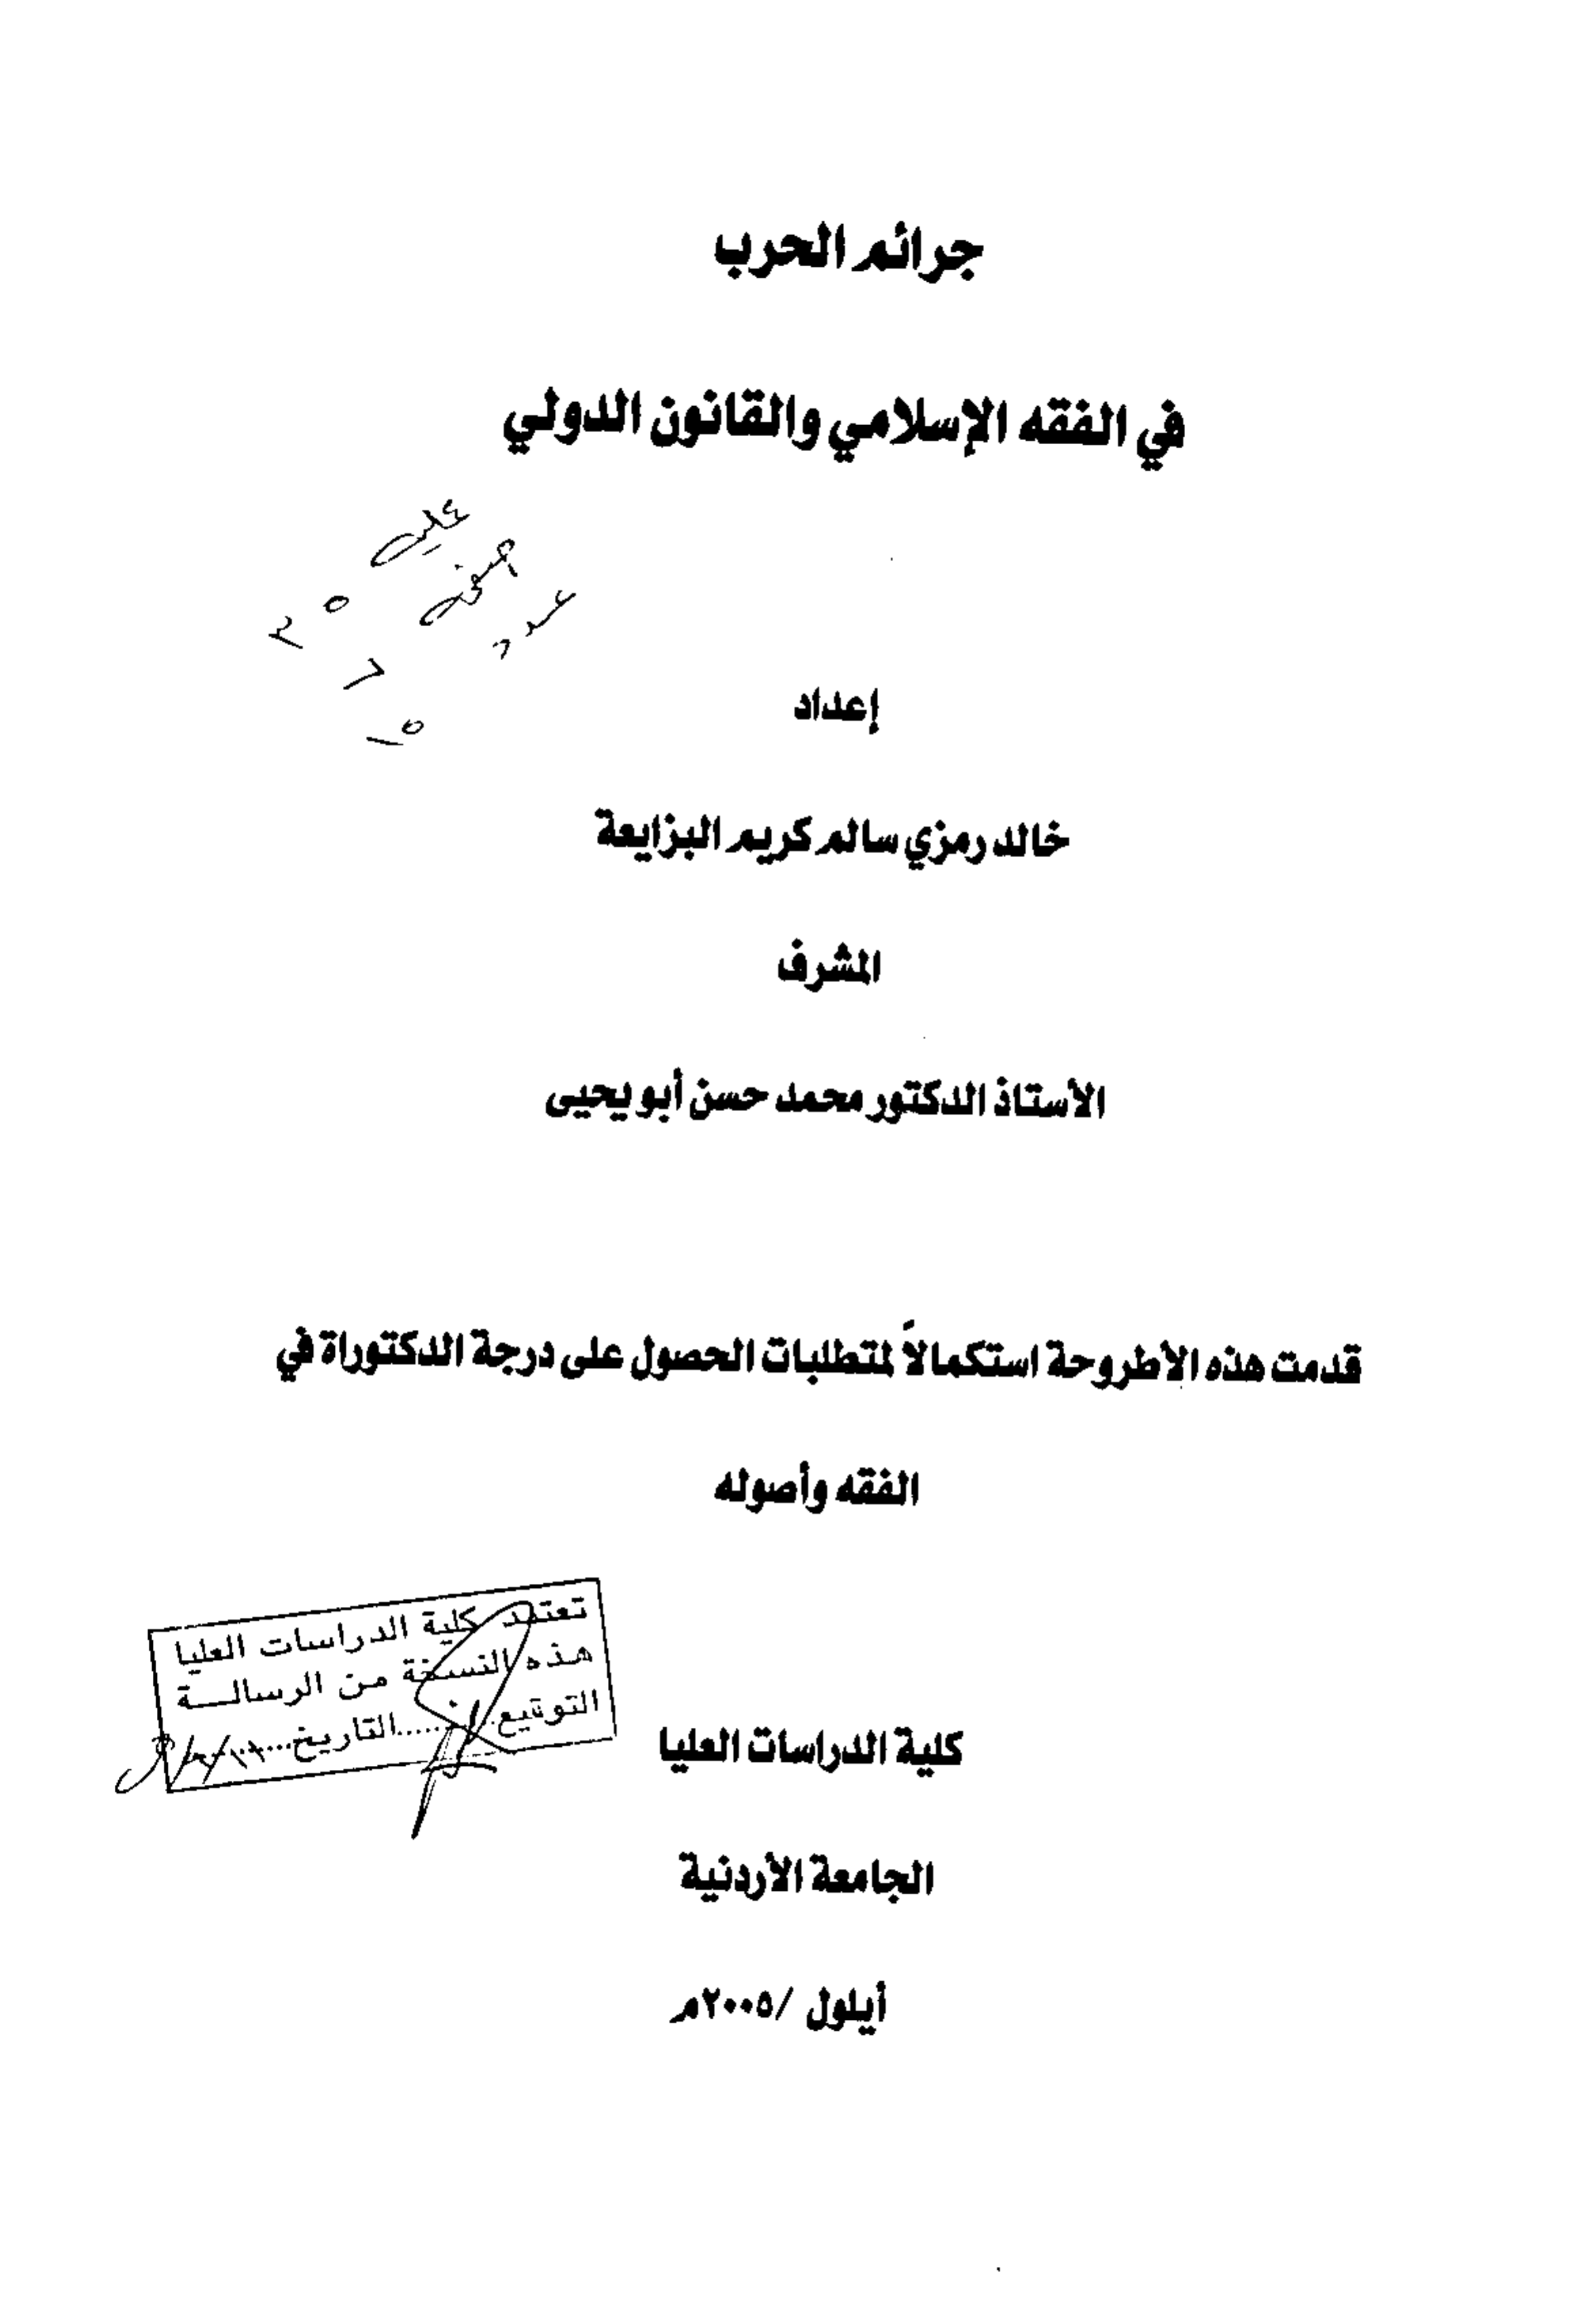 جرائم الحرب
في الفقه الإسلامي والقانون الدولي
إعداد
خالد رمزي سالم كريم البزايعة
المشرف
الأستاذ الدكتور محمد حسن أبو يحيى
قدمت هذه الأطروحة استكمالاً لمتطلبات الحصول على درجة الدكتوراة في
الفقه وأصوله
تعتمد كلية الدراسات العليا
هذه النسخة من الرسالــة
التوقيع.........التاريخ.......
كلية الدراسات العليا
الجامعة الأردنية
أيلول /٢٠٠٥م